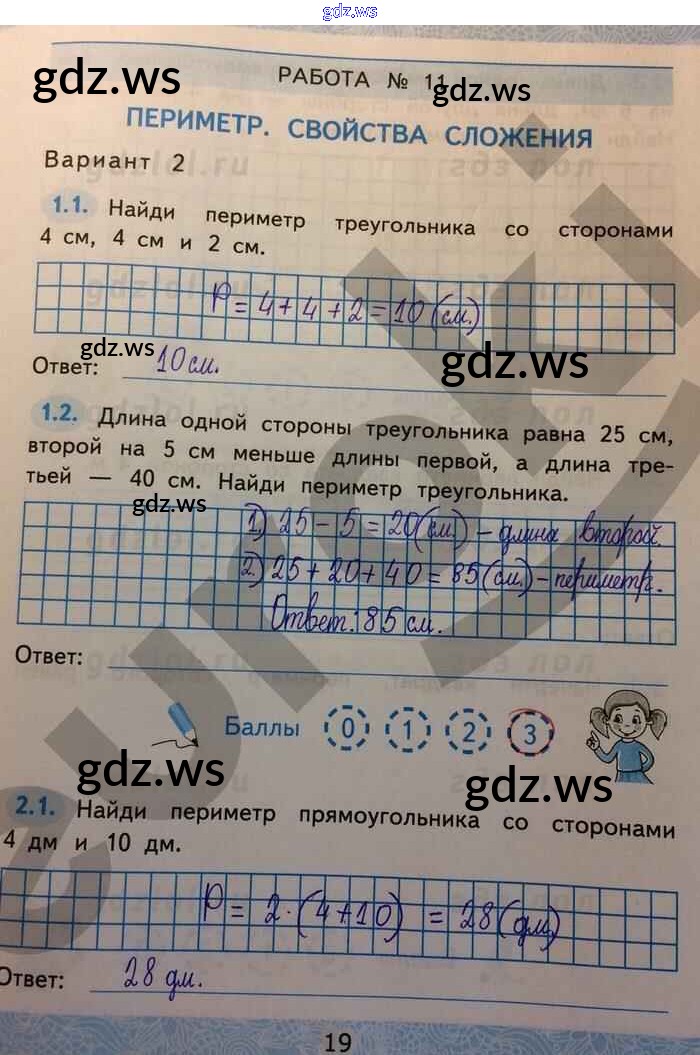 gdz.ws
gdz.ws
РАБОТА № 11
gdz.ws
ПЕРИМЕТР. СВОЙСТВА СЛОЖЕНИЯ
Вариант 2
1.1. Найди периметр треугольника со сторонами
4 см, 4 см и 2 см.
P = 4 + 4 + 2 = 10 (см.)
gdz.ws
gdz.ws
Ответ: 10 см.
1.2. Длина одной стороны треугольника равна 25 см,
второй на 5 см меньше длины первой, а длина тре-
тьей — 40 см. Найди периметр треугольника.
gdz.ws
1) 25 - 5 = 20 (см.) - длина второй.
2) 25 + 20 + 40 = 85 (см.) - периметр.
Ответ: 85 см.
Ответ:
Баллы 0 1 2 3
gdz.ws
gdz.ws
2.1. Найди периметр прямоугольника со сторонами
4 дм и 10 дм.
P = 2 · (4 + 10) = 28 (дм.)
Ответ: 28 дм.
19